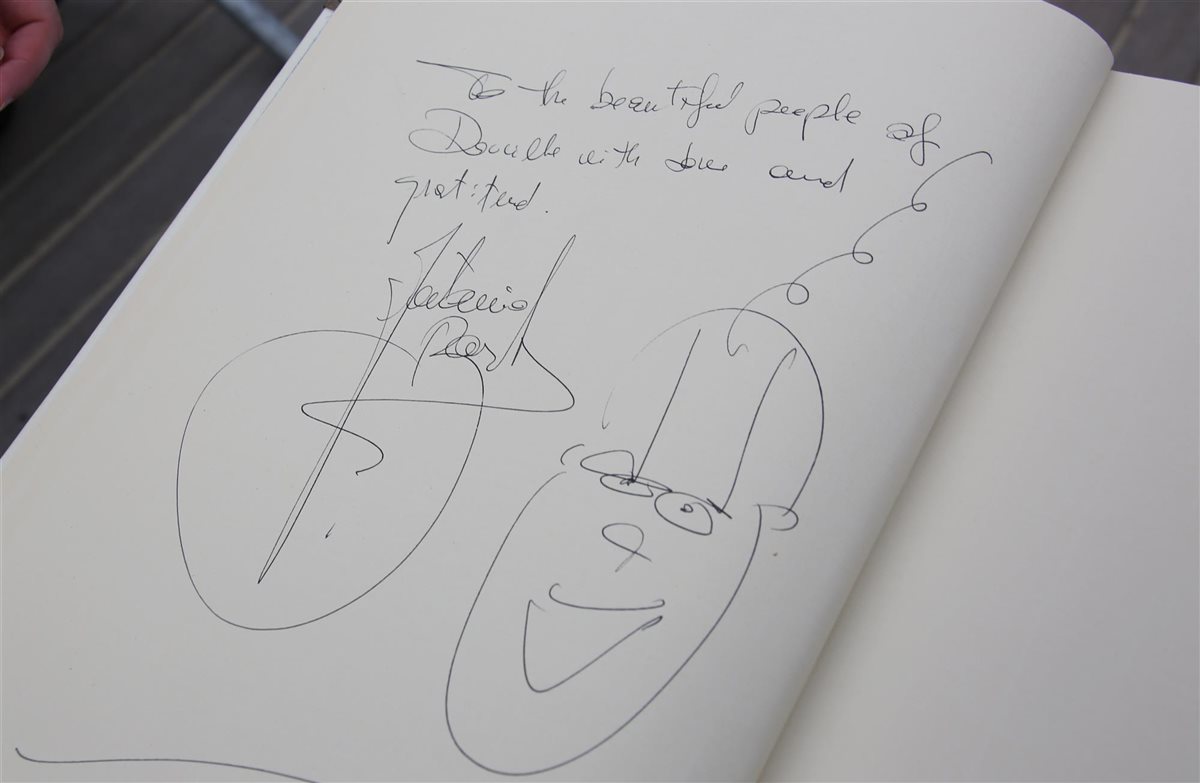 To the beautiful people of
with love and
gratitud.